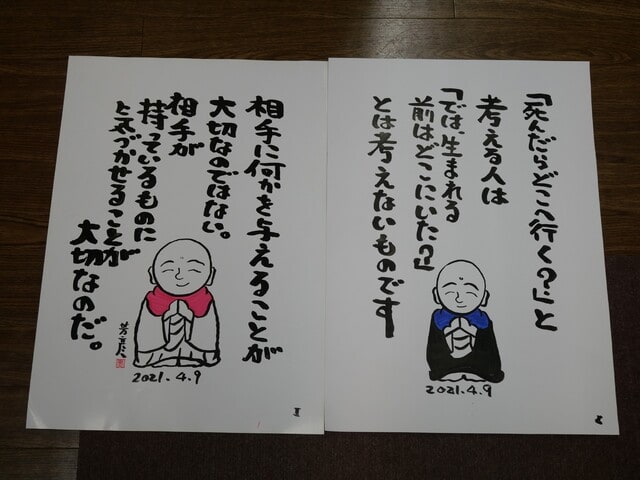 「死んだらどこへ行く?」と
考える人は
「では、生まれる
前はどこにいた?」
とは考えないものです
2021.4.9
相手に何かを与えることが
大切なのではない。
相手が
持っているものに
と気づかせることが
大切なのだ。
2021.4.9